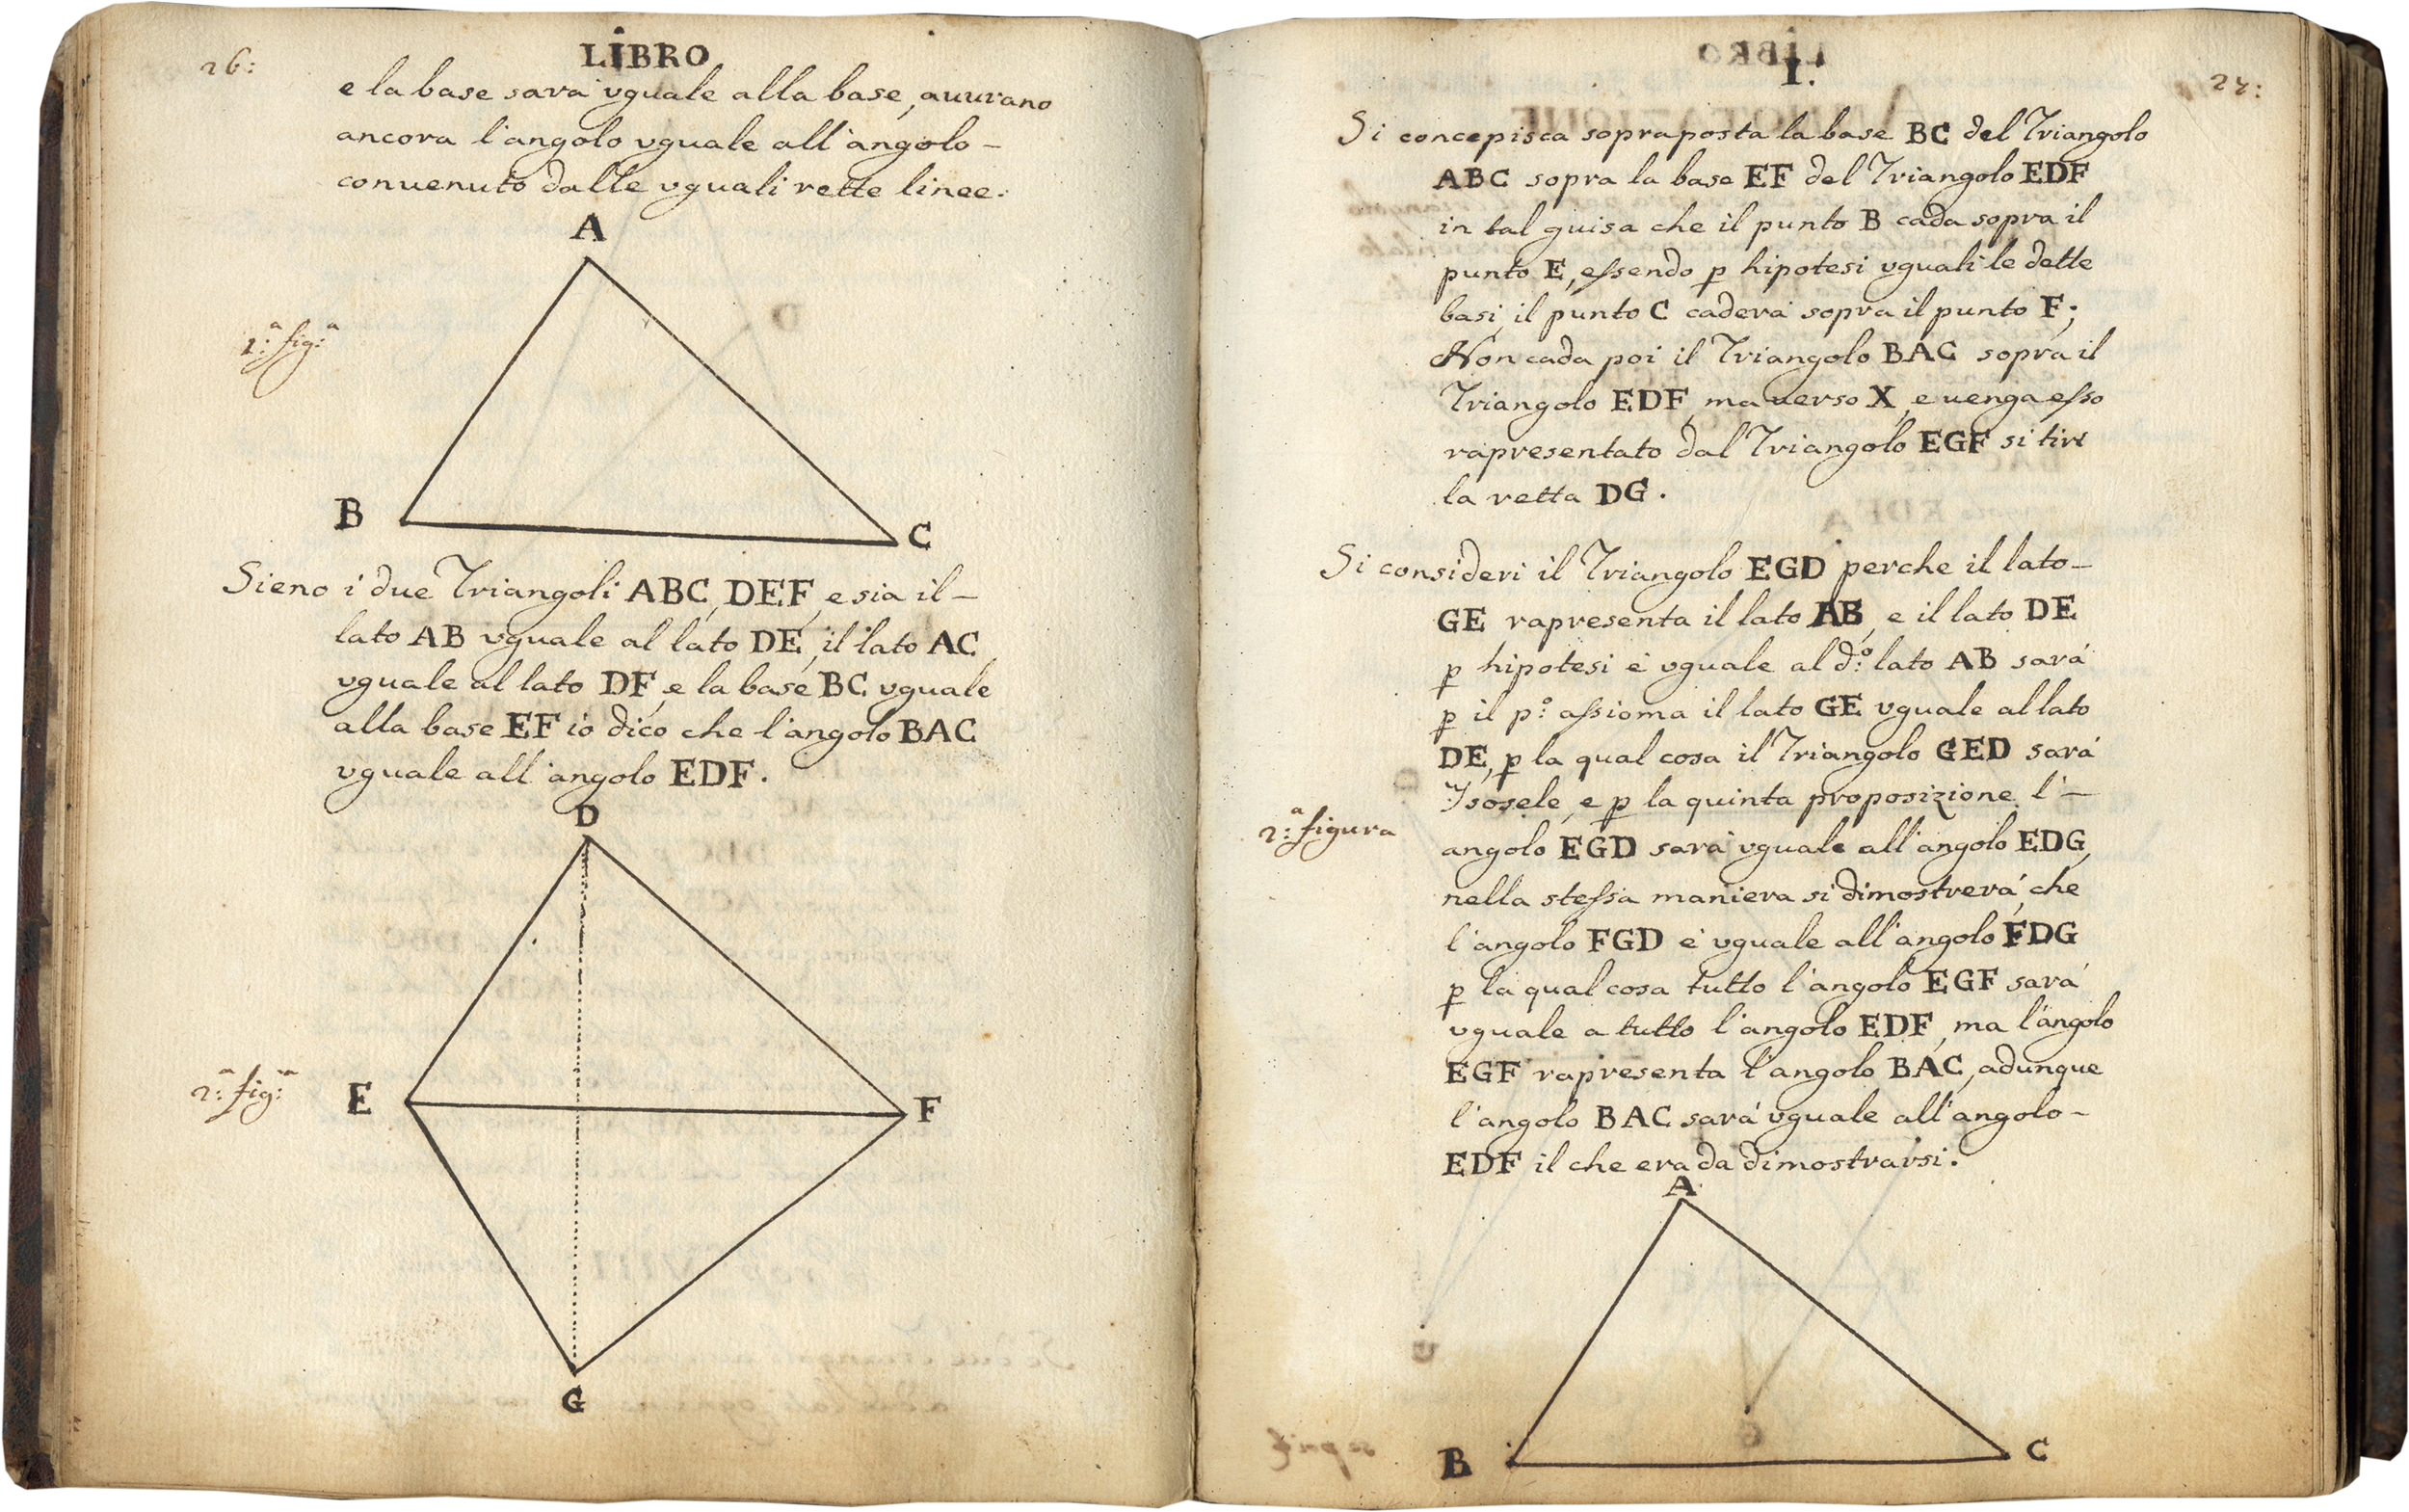 26:
LIBRO
e la base sarà vguale alla base, auurano
ancora l'angolo vguale all'angolo -
conuenuto dalle vguali rette linee:
A
1:ª fig:ª
B
C
Sieno i due Triangoli ABC, DEF, e sia il -
lato AB vguale al lato DE, il lato AC
vguale al lato DF, e la base BC vguale
alla base EF io dico che l'angolo BAC
vguale all'angolo EDF.
D
2:ª fig:ª
E
F
G
I.
27:
Si concepisca sopraposta la base BC del Triangolo
ABC sopra la base EF del Triangolo EDF
in tal guisa che il punto B cada sopra il
punto E, essendo p hipotesi vguali le dette
basi, il punto C caderà sopra il punto F;
Non cada poi il Triangolo BAC sopra il
Triangolo EDF, ma uerso X, e uenga esso
rapresentato dal Triangolo EGF si tire
la retta DG.
Si consideri il Triangolo EGD perche il lato -
GE rapresenta il lato AB, e il lato DE
p hipotesi è vguale al d:º lato AB sarà
p il p:º assioma il lato GE vguale al lato
DE, p la qual cosa il Triangolo GED sarà
Isosele, e p la quinta proposizione l' -
2:ª figura
angolo EGD sarà vguale all'angolo EDG,
nella stessa maniera si dimostrerà, che
l'angolo FGD è vguale all'angolo FDG
p la qual cosa tutto l'angolo EGF sarà
vguale a tutto l'angolo EDF, ma l'angolo
EGF rapresenta l'angolo BAC, adunque
l'angolo BAC sarà vguale all'angolo -
EDF il che era da dimostrarsi.
A
B
C